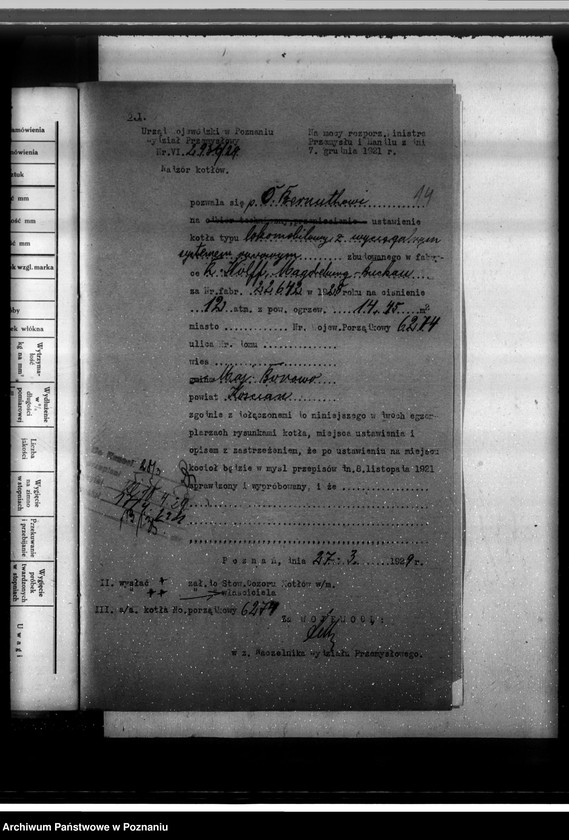 Urząd Wojewódzki w Poznaniu
Wydział Przemysłowy
Nr.VI.
Nadzór kotłów.
Na mocy rozporz. Ministra
Przemysłu i Handlu z dni
7. grudnia 1921 r.
19
pozwala się p. O. Bernuthowi
na ustawienie
kotła typu lokomobilowy z wyciąganym
systemem rurowym zbudowanego w fabry-
ce R. Wolff, Magdeburg-Buckau
za Nr.fabr. 22642 w 1925 roku na ciśnienie
12 atm. z pow. ogrzew. 14.45 m2
miasto ............ Nr. Wojew.Porządkowy 6274
ulica Nr. domu ..............
wieś
gmina Maj. Borowo
powiat Kościan
zgodnie z dołączonemi do niniejszego w dwóch egzem-
plarzach rysunkami kotła, miejsca ustawienia i
opisem z zastrzeżeniem, że po ustawieniu na miejscu
kocioł będzie w myśl przepisów dn.8.listopada 1921
sprawdzony i wypróbowany, i że
Poznań, dnia 27. 3. 1929 r.
II. wysłać zał. do Stow.Dozoru Kotłów w/m.
właściciela
III. a/a. kotła No.porządkowy 6274
Za WOJEWODĘ:
w z. Naczelnika Wydziału Przemysłowego.
mówienia
tuk
mm
ość mm
mm
k wzgl.marka
oby
ek włókna
Wytrzyma-
łość
kg na mm
Wydłużenie
w %
długości
pomiarowej
Liczba
jakości
Wygięcie
na zimno
w stopniach
Przekuwanie
i przebijanie
Wygięcie
próbek
twardzonych
w stopniach
Uwagi
Archiwum Państwowe w Poznaniu